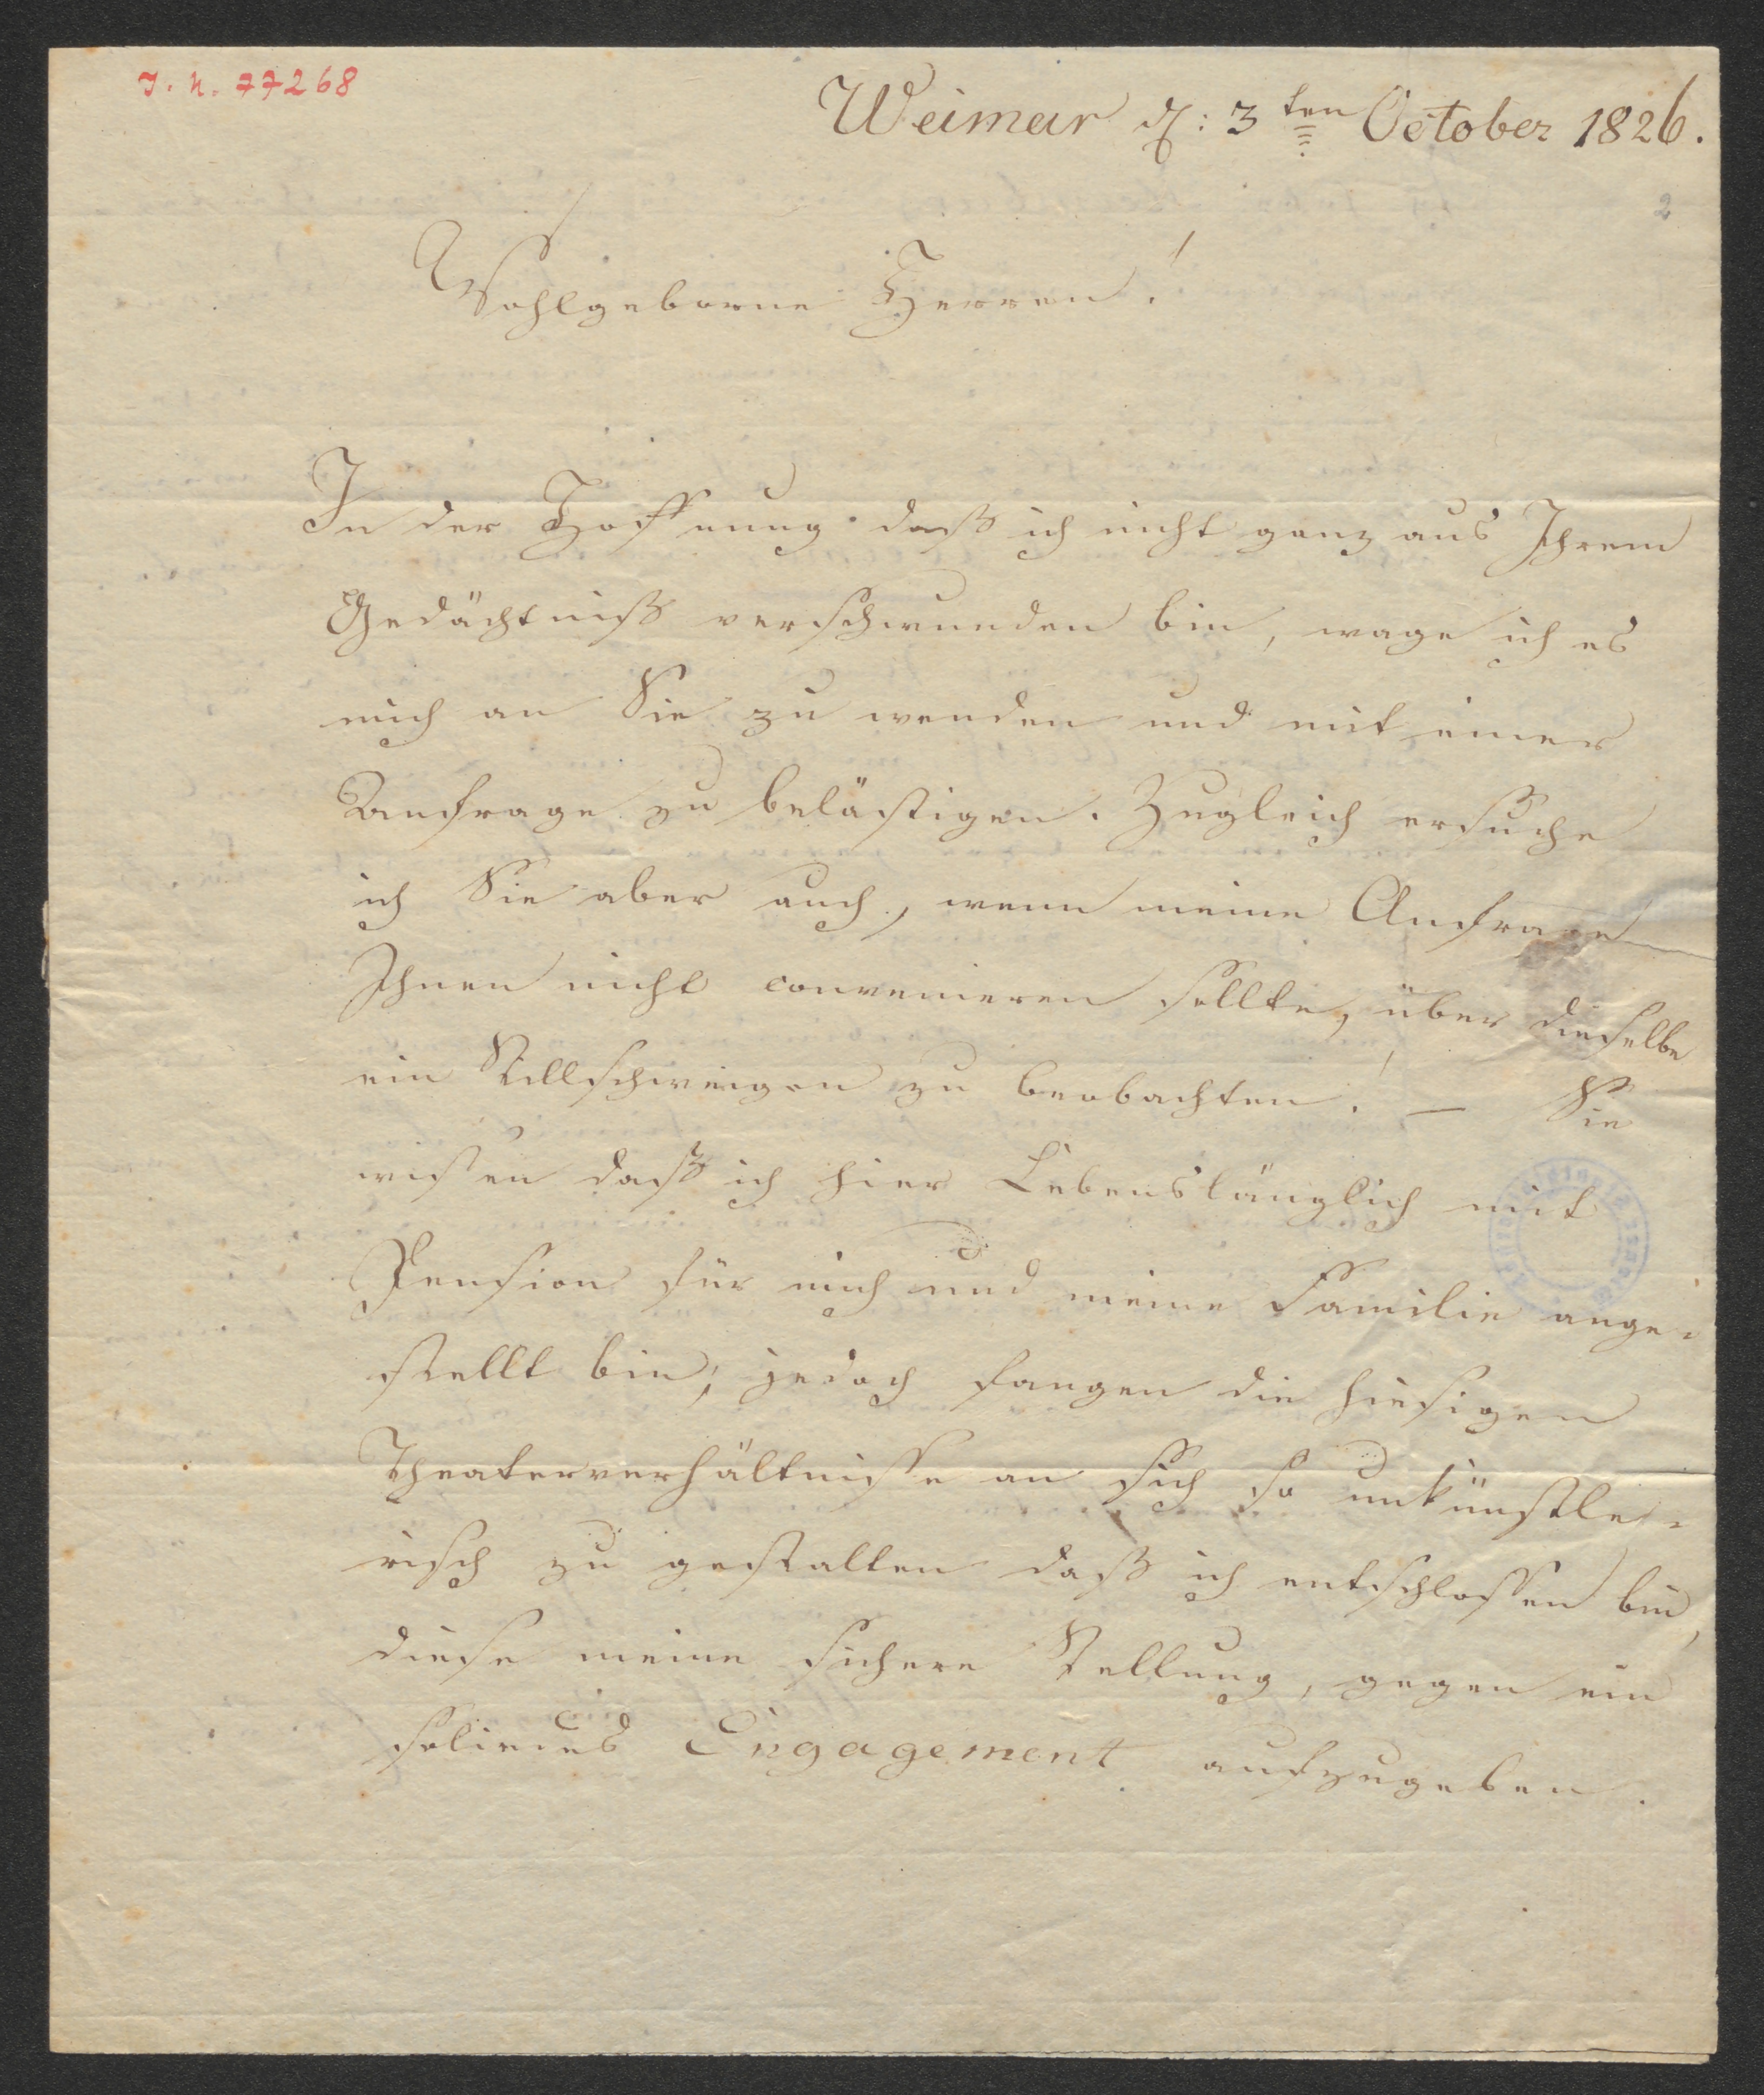 J. N. 77268
Weimar d: 3ten October 1826.
2
Wohlgeborne Herren!
In der Hoffnung daß ich nicht ganz aus Ihrem
Gedächtniß verschwunden bin, wage ich es
mich an Sie zu wenden und mit einer
Anfrage zu belästigen. Zugleich ersuche
ich Sie aber auch, wenn meine Anfrage
Ihnen nicht convenieren sollte, über dieselbe
ein Stillschweigen zu beobachten! — Sie
wissen daß ich hier Lebenslänglich mit
Pension für mich und meine Familie ange-
stellt bin; jedoch fangen die hiesigen
Theaterverhältnisse an sich so unkünstle-
risch zu gestalten daß ich entschlossen bin,
diese meine sichere Stellung, gegen ein
solieves Engagement aufzugeben.